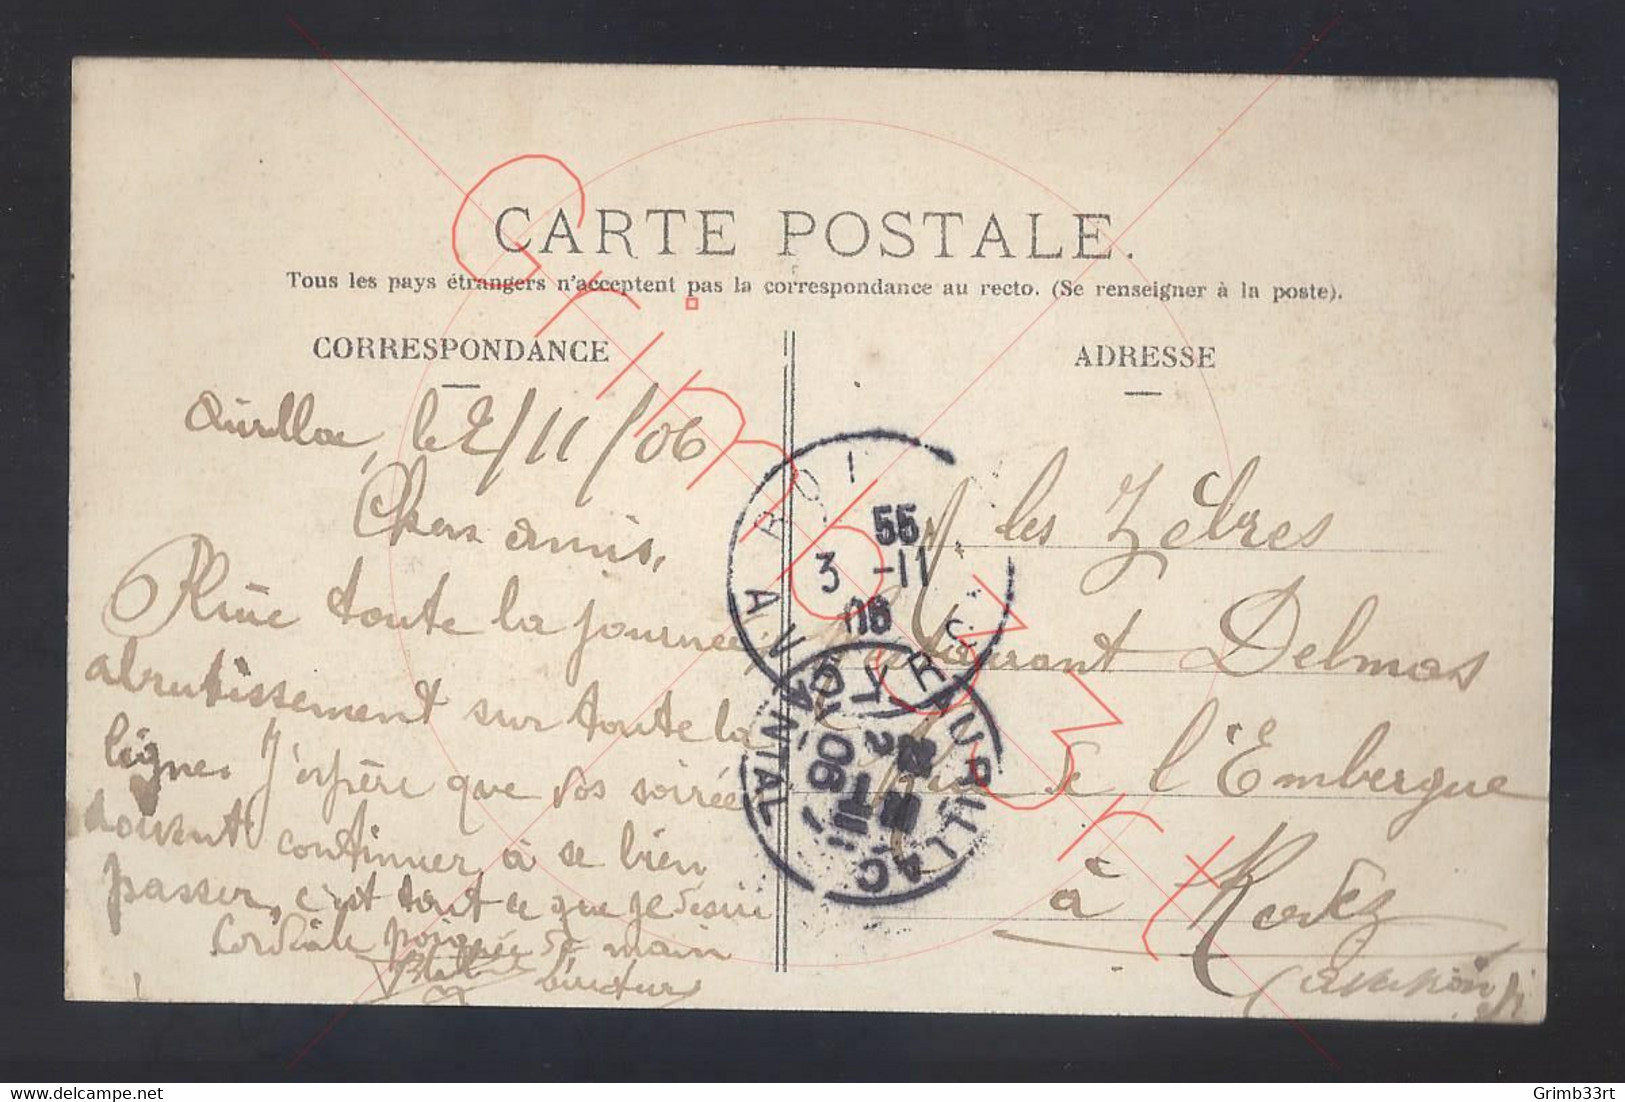 CARTE POSTALE.
Tous les pays étrangers n'acceptent pas la correspondance au recto. (Se renseigner à la poste).
CORRESPONDANCE
ADRESSE
Aurillac, le 2/11/06
Chers amis,
Pluie toute la journée,
abrutissement sur toute la
ligne. J'espère que vos soirées
doivent continuer à se bien
passer, c'est tout ce que je
Cordiale poignée de main
les Zèbres
Restaurant Delmas
Rue de l'Embergue
à Rodez
Aveyron
55
3 -11
06
AVEYRON
AURILLAC
CANTAL
06
Grimb33rt
delcampe.net
Grimb33rt